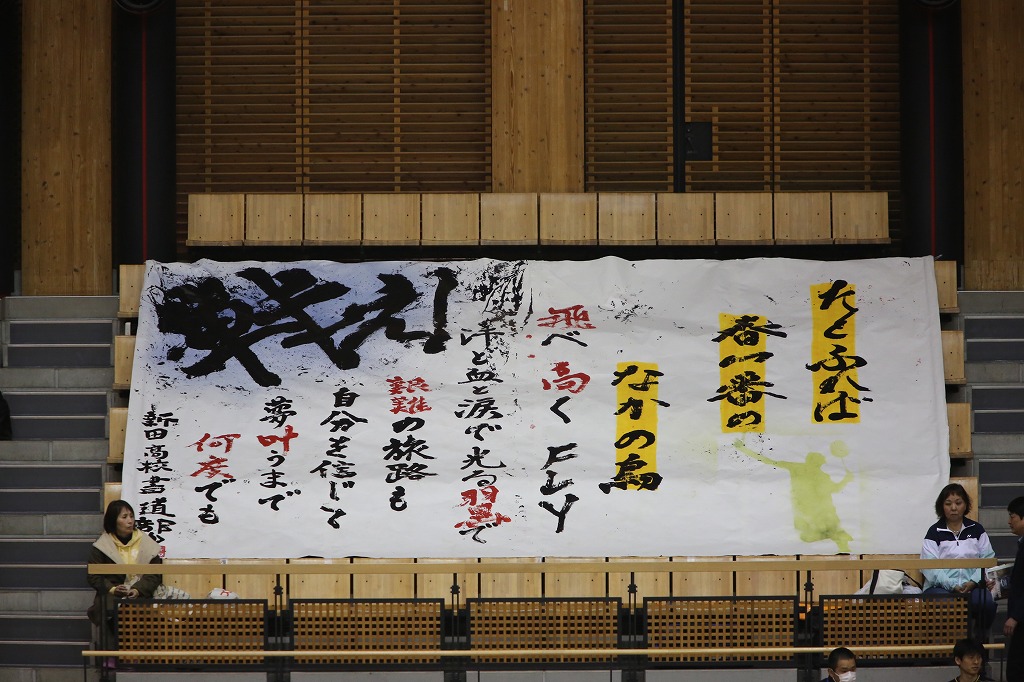 たとふれば
春一番の
なかの鳥
飛べ高くFLY
汗と血と涙で光る翼で
艱難の旅路も
自分を信じて
夢叶うまで
何度でも
戦え!
新田高校書道部